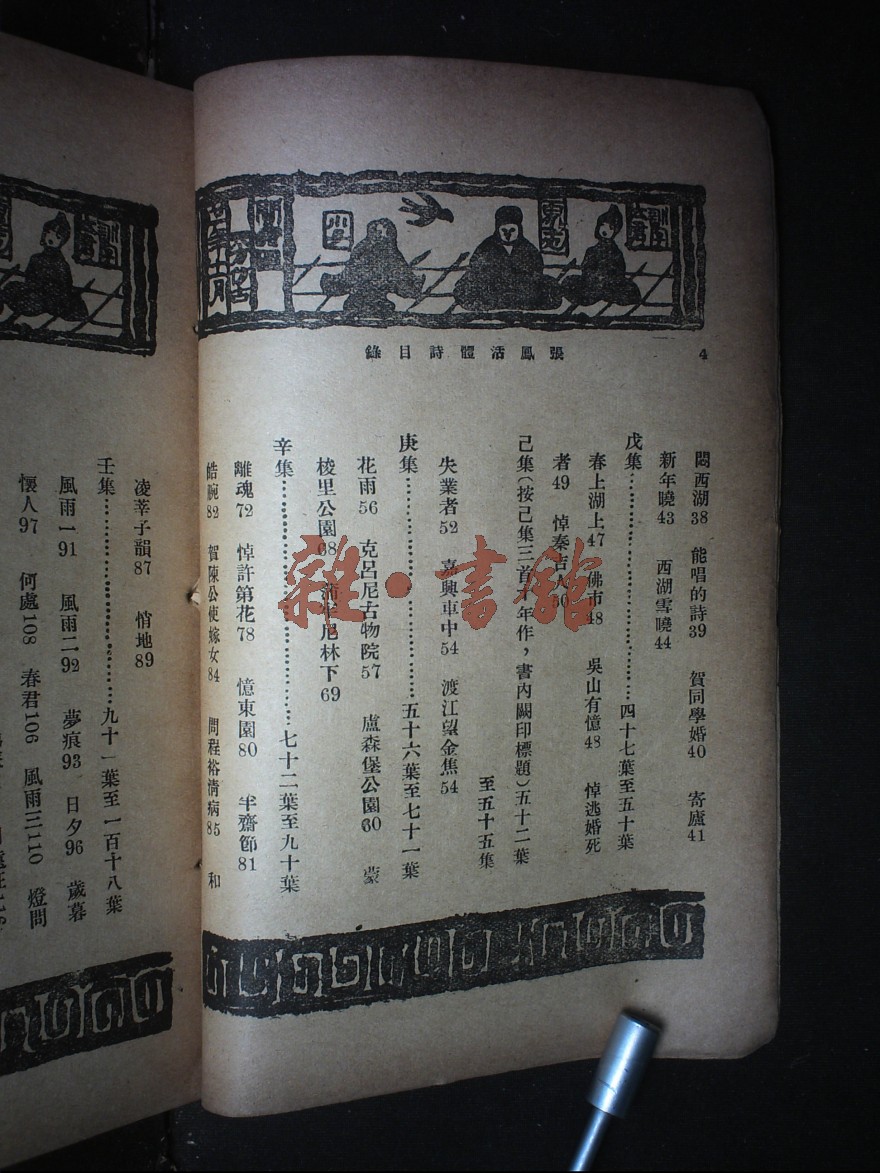 張鳳活體詩目錄
4
悶西湖38 能唱的詩39 賀同學婚40 寄廬41
新年曉43 西湖雪曉44
戊集……………………………四十七葉至五十葉
春上湖上47 佛市48 吳山有憶48 悼逃婚死
者49 悼秦吉人50
己集(按己集三首 年作，書內闕印標題)五十二葉
至五十五集
失業者52 嘉興車中54 渡江望金焦54
庚集……………………………五十六葉至七十一葉
花雨56 克呂尼古物院57 盧森堡公園60 蒙
梭里公園68 蒲 尼林下69
辛集……………………………七十二葉至九十葉
離魂72 悼許第花78 憶東園80 半齋節81
皓腕82 賀陳公使嫁女84 問程裕清病85 和
凌莘子韻87 悄地89
壬集……………………………九十一葉至一百十八葉
風雨一91 風雨二92 夢痕93 日夕96 歲暮
懷人97 何處108 春君106 風雨三110 燈問
雜·書館